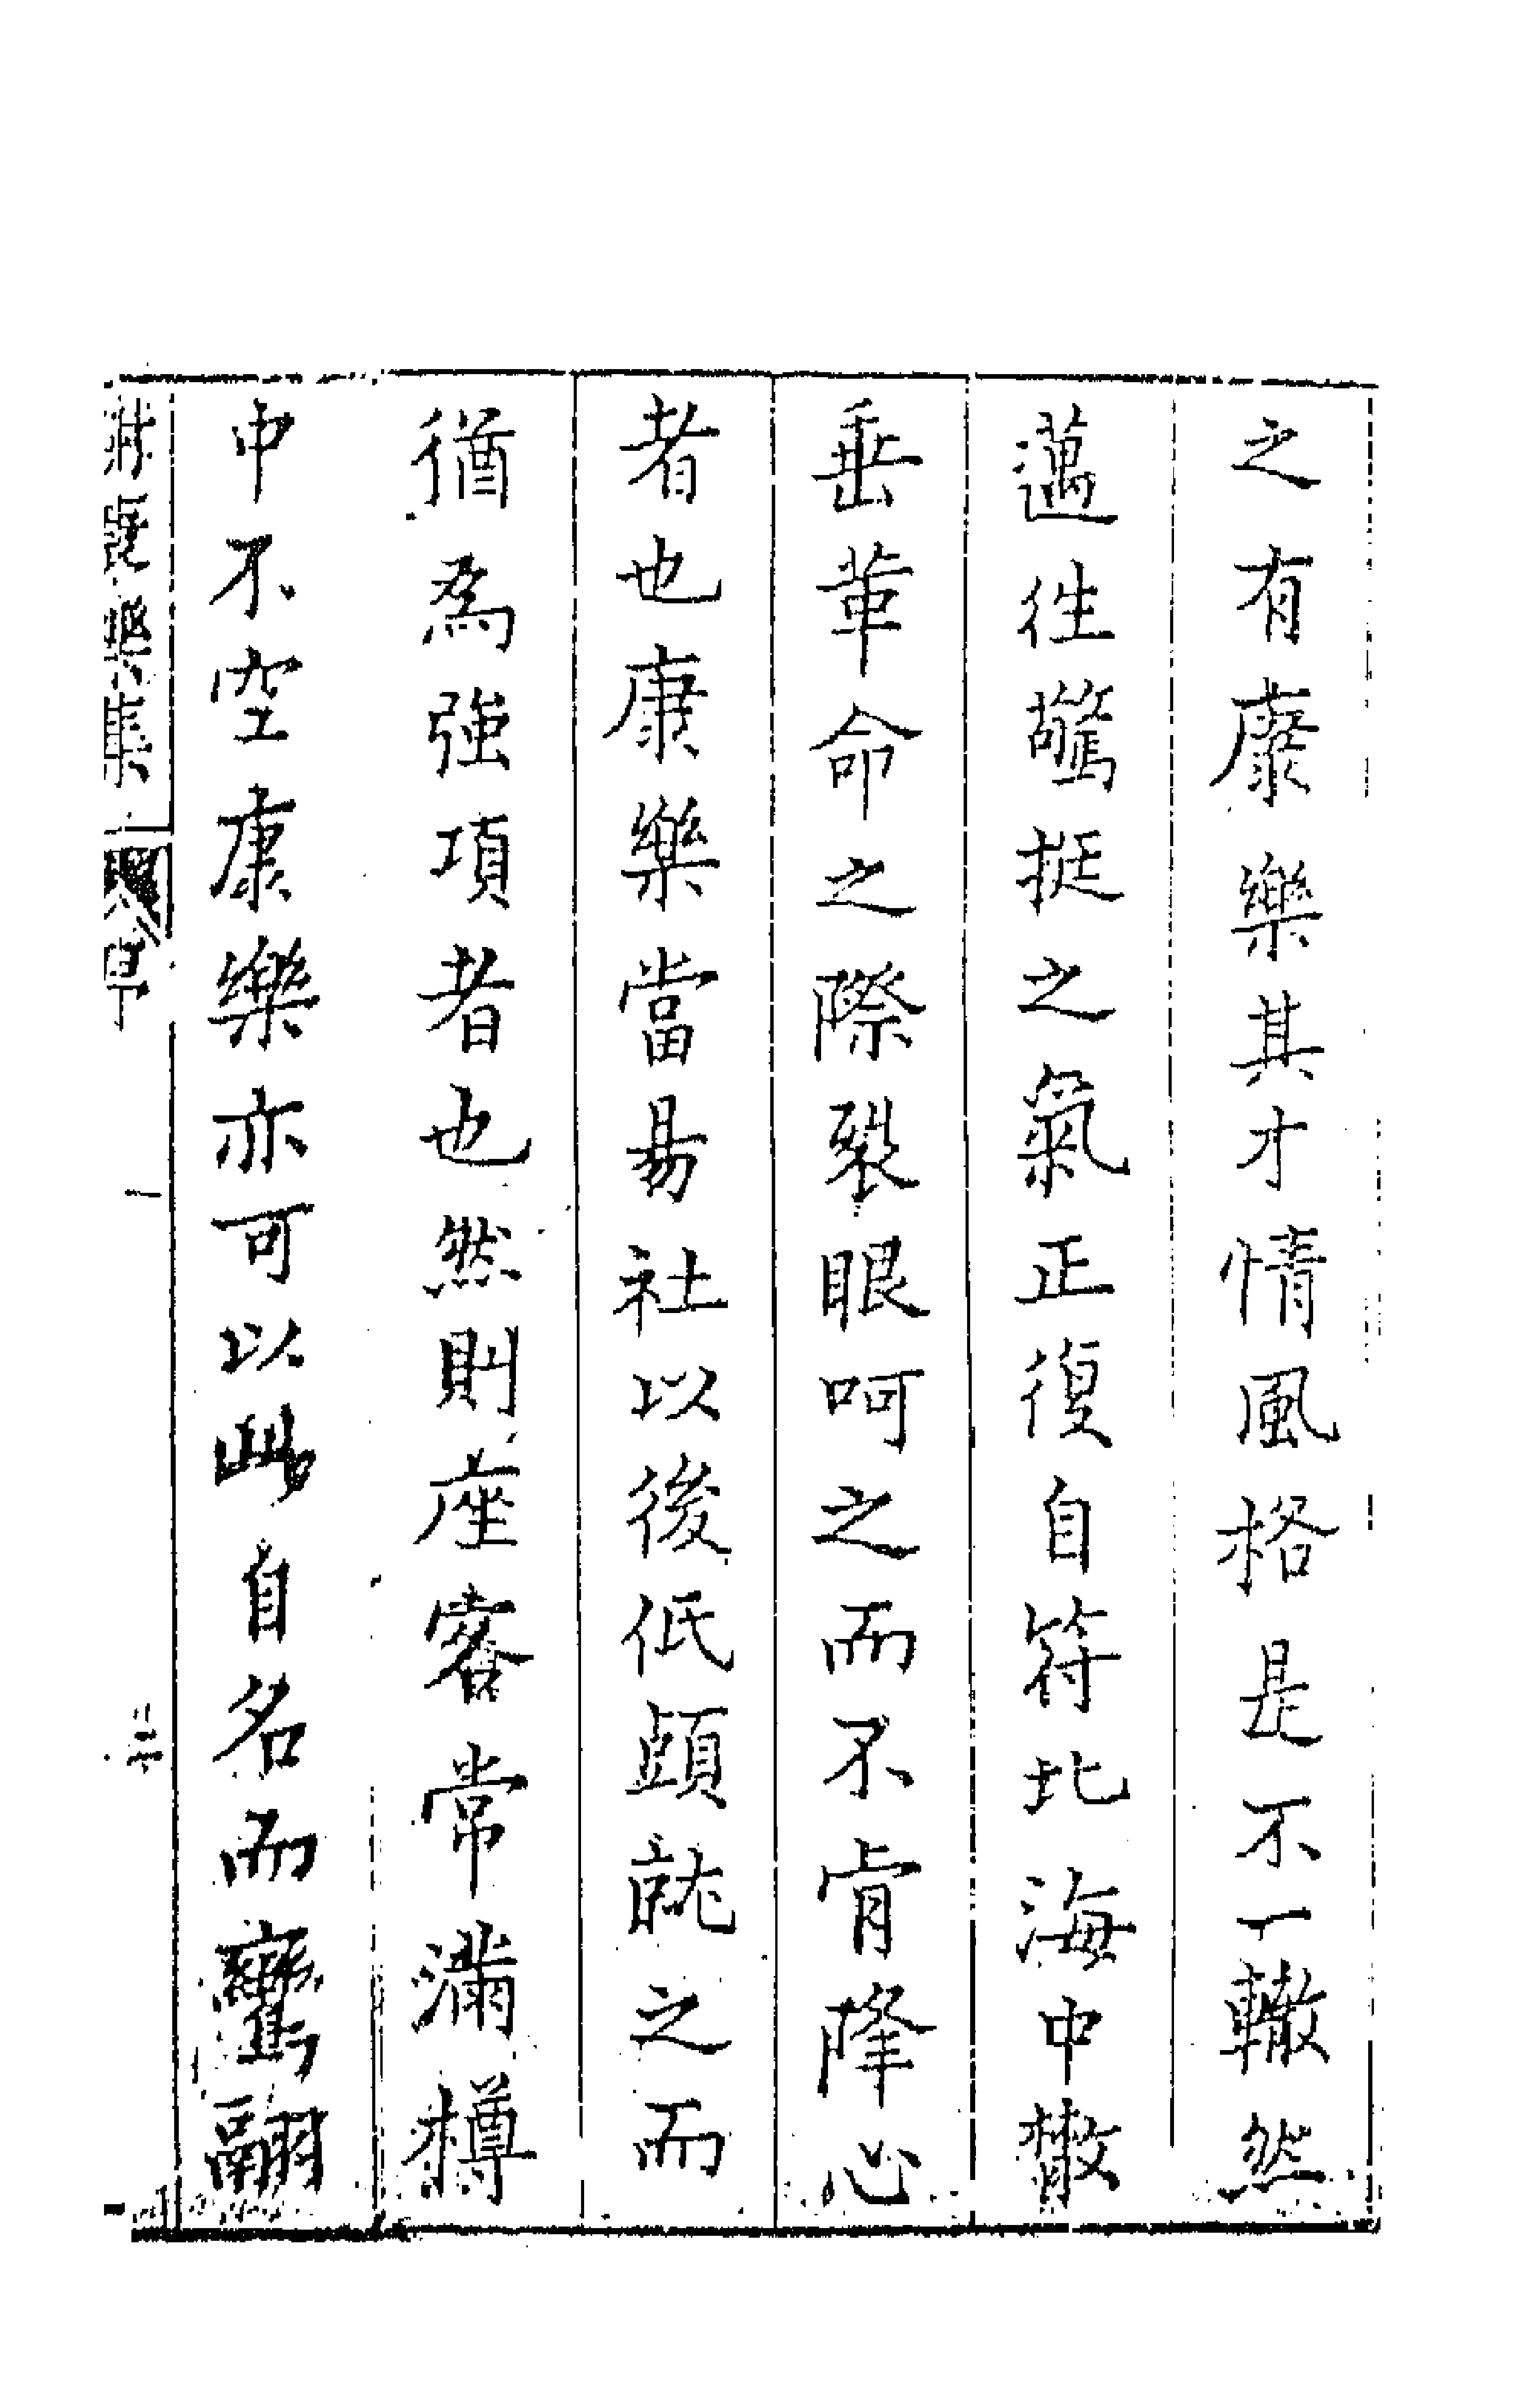 之有康樂其才情風格是不一轍然
邁往驁挺之氣正復自符北海中散
垂革命之際裂眼呵之而不肯降心
者也康樂當易社以後低頭就之而
猶為強項者也然則座客常滿樽
中不空康樂亦可以此自名而鸞翮
康樂集